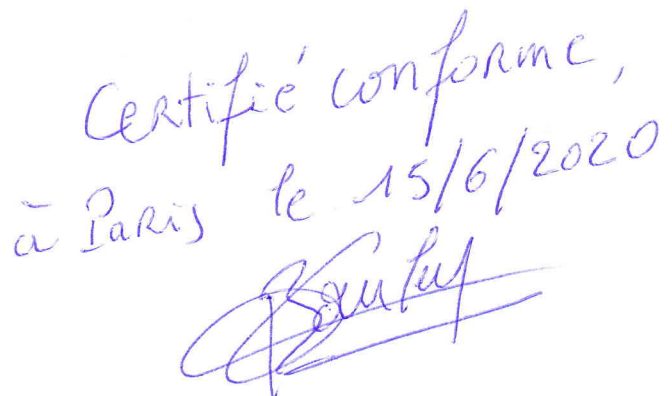 Certifié conforme,
à Paris le 15/6/2020